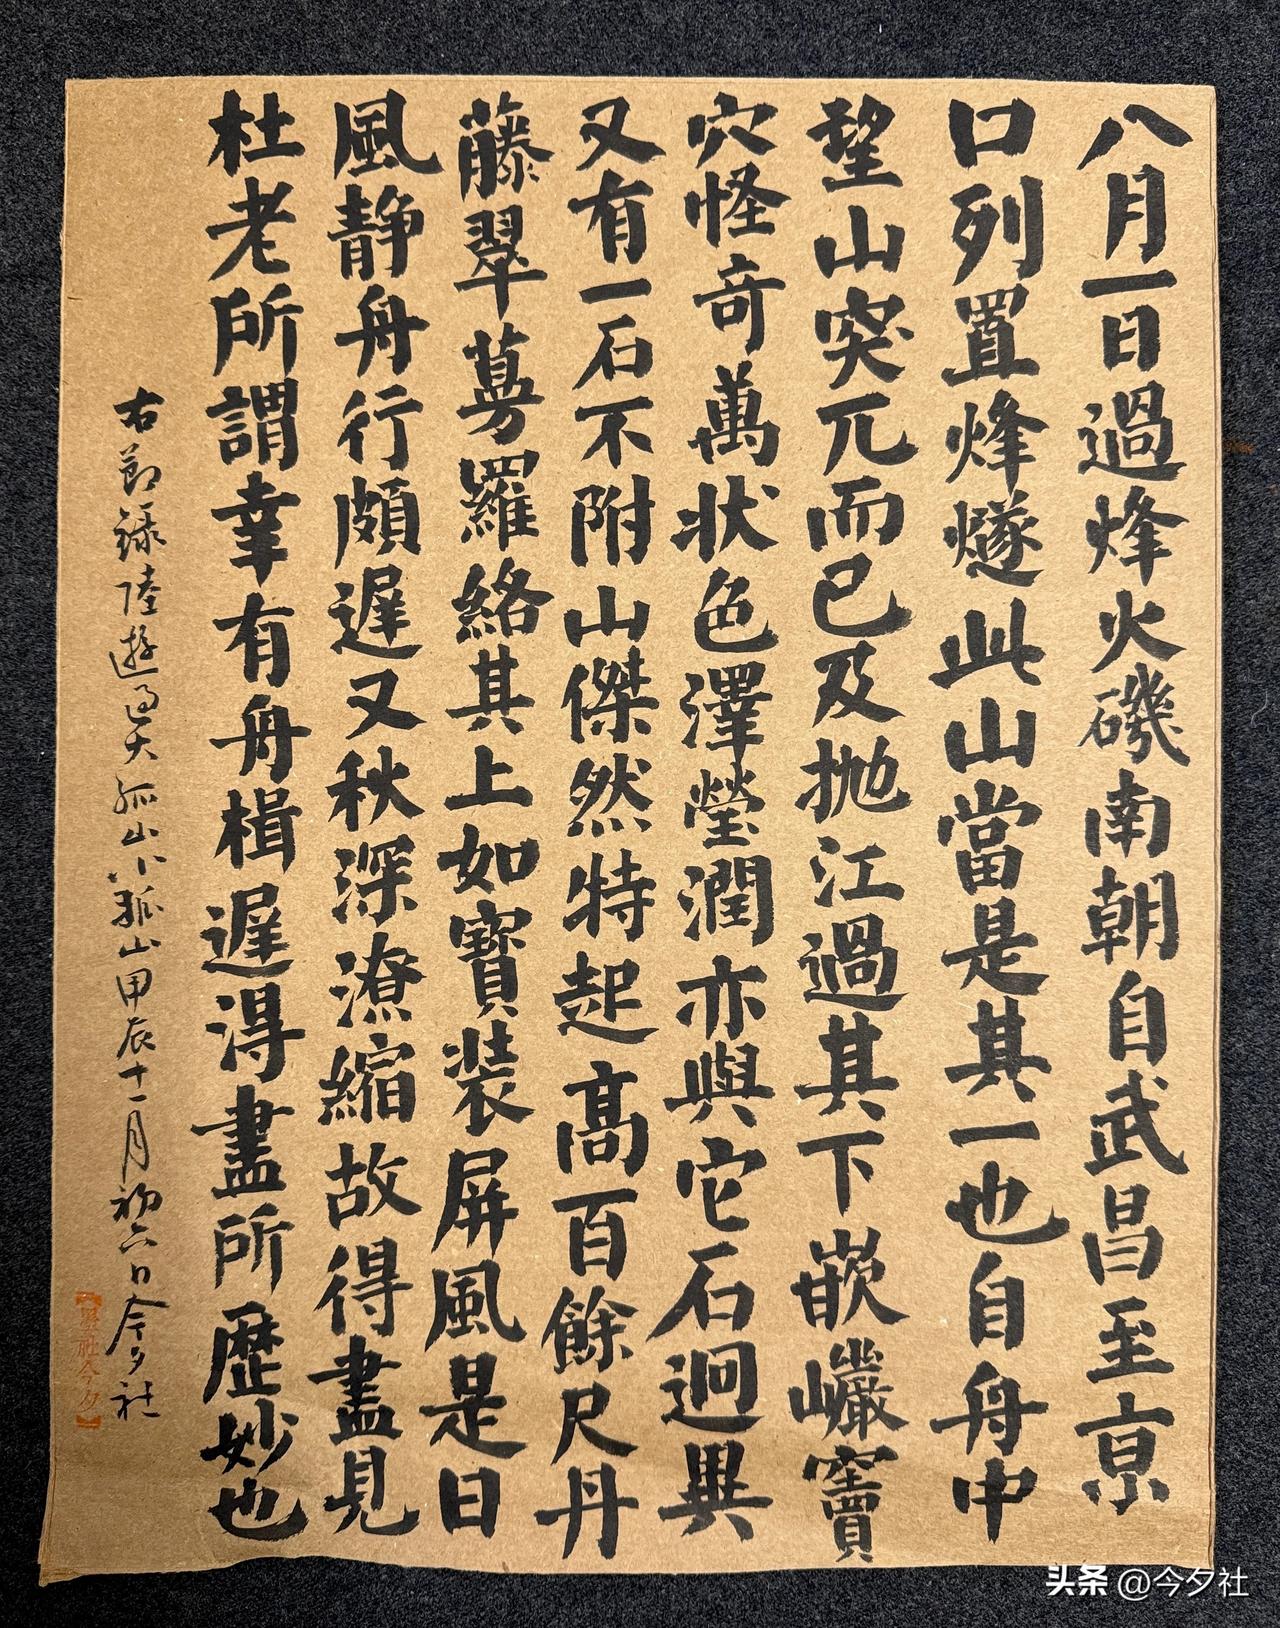 八月一日過烽火磯南朝自武昌至京
口列置烽燧此山當是其一也自舟中
望山突兀而已及抛江過其下嵌巉竇
穴怪奇萬状色澤瑩潤亦與它石迥異
又有一石不附山傑然特起高百餘尺丹
藤翠蔓羅絡其上如寶装屏風是日
風静舟行頗遲又秋深潦縮故得盡見
杜老所謂幸有舟楫遲得盡所歷妙也
右節録陸遊過大孤山小孤山甲辰十一月初六日今夕社
【墨社今夕】
头条 @今夕社